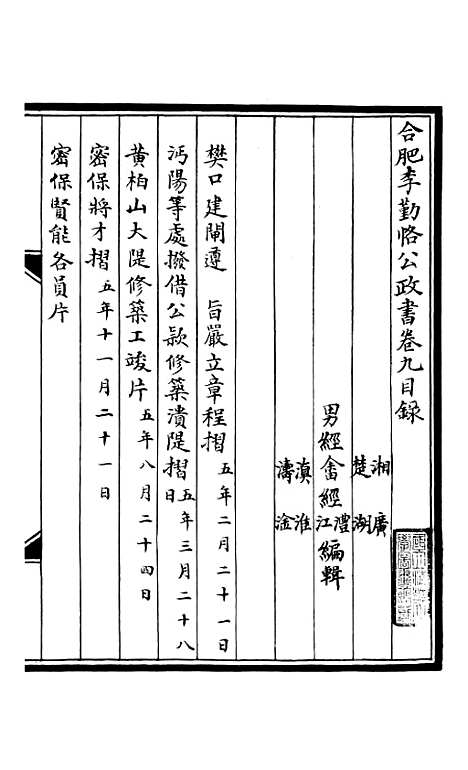 合肥李勤恪公政書卷九目錄
湘　廣
楚　湖
男經畬經澧江編輯
滇　淮
濤　淦
樊口建閘遵　旨嚴立章程摺 五年二月二十一日
沔陽等處撥借公款修築潰隄摺 五年三月二十八日
黃柏山大隄修築工竣片 五年八月二十四日
密保將才摺 五年十一月二十一日
密保賢能各員片